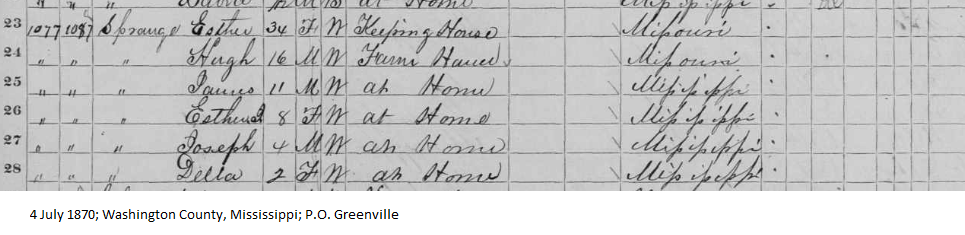 at Home
23 1077 1087 Sprange Esther 34 F W Keeping House Missouri
24 " " " Hugh 16 M W Farm Missouri
25 " " " James 11 M W at Home Mississippi
26 " " " Esther 8 F W at Home Mississippi
27 " " Joseph 4 M W at Home Mississippi
28 " " " Della 2 F W at Home Mississippi
4 July 1870; Washington County, Mississippi; P.O. Greenville